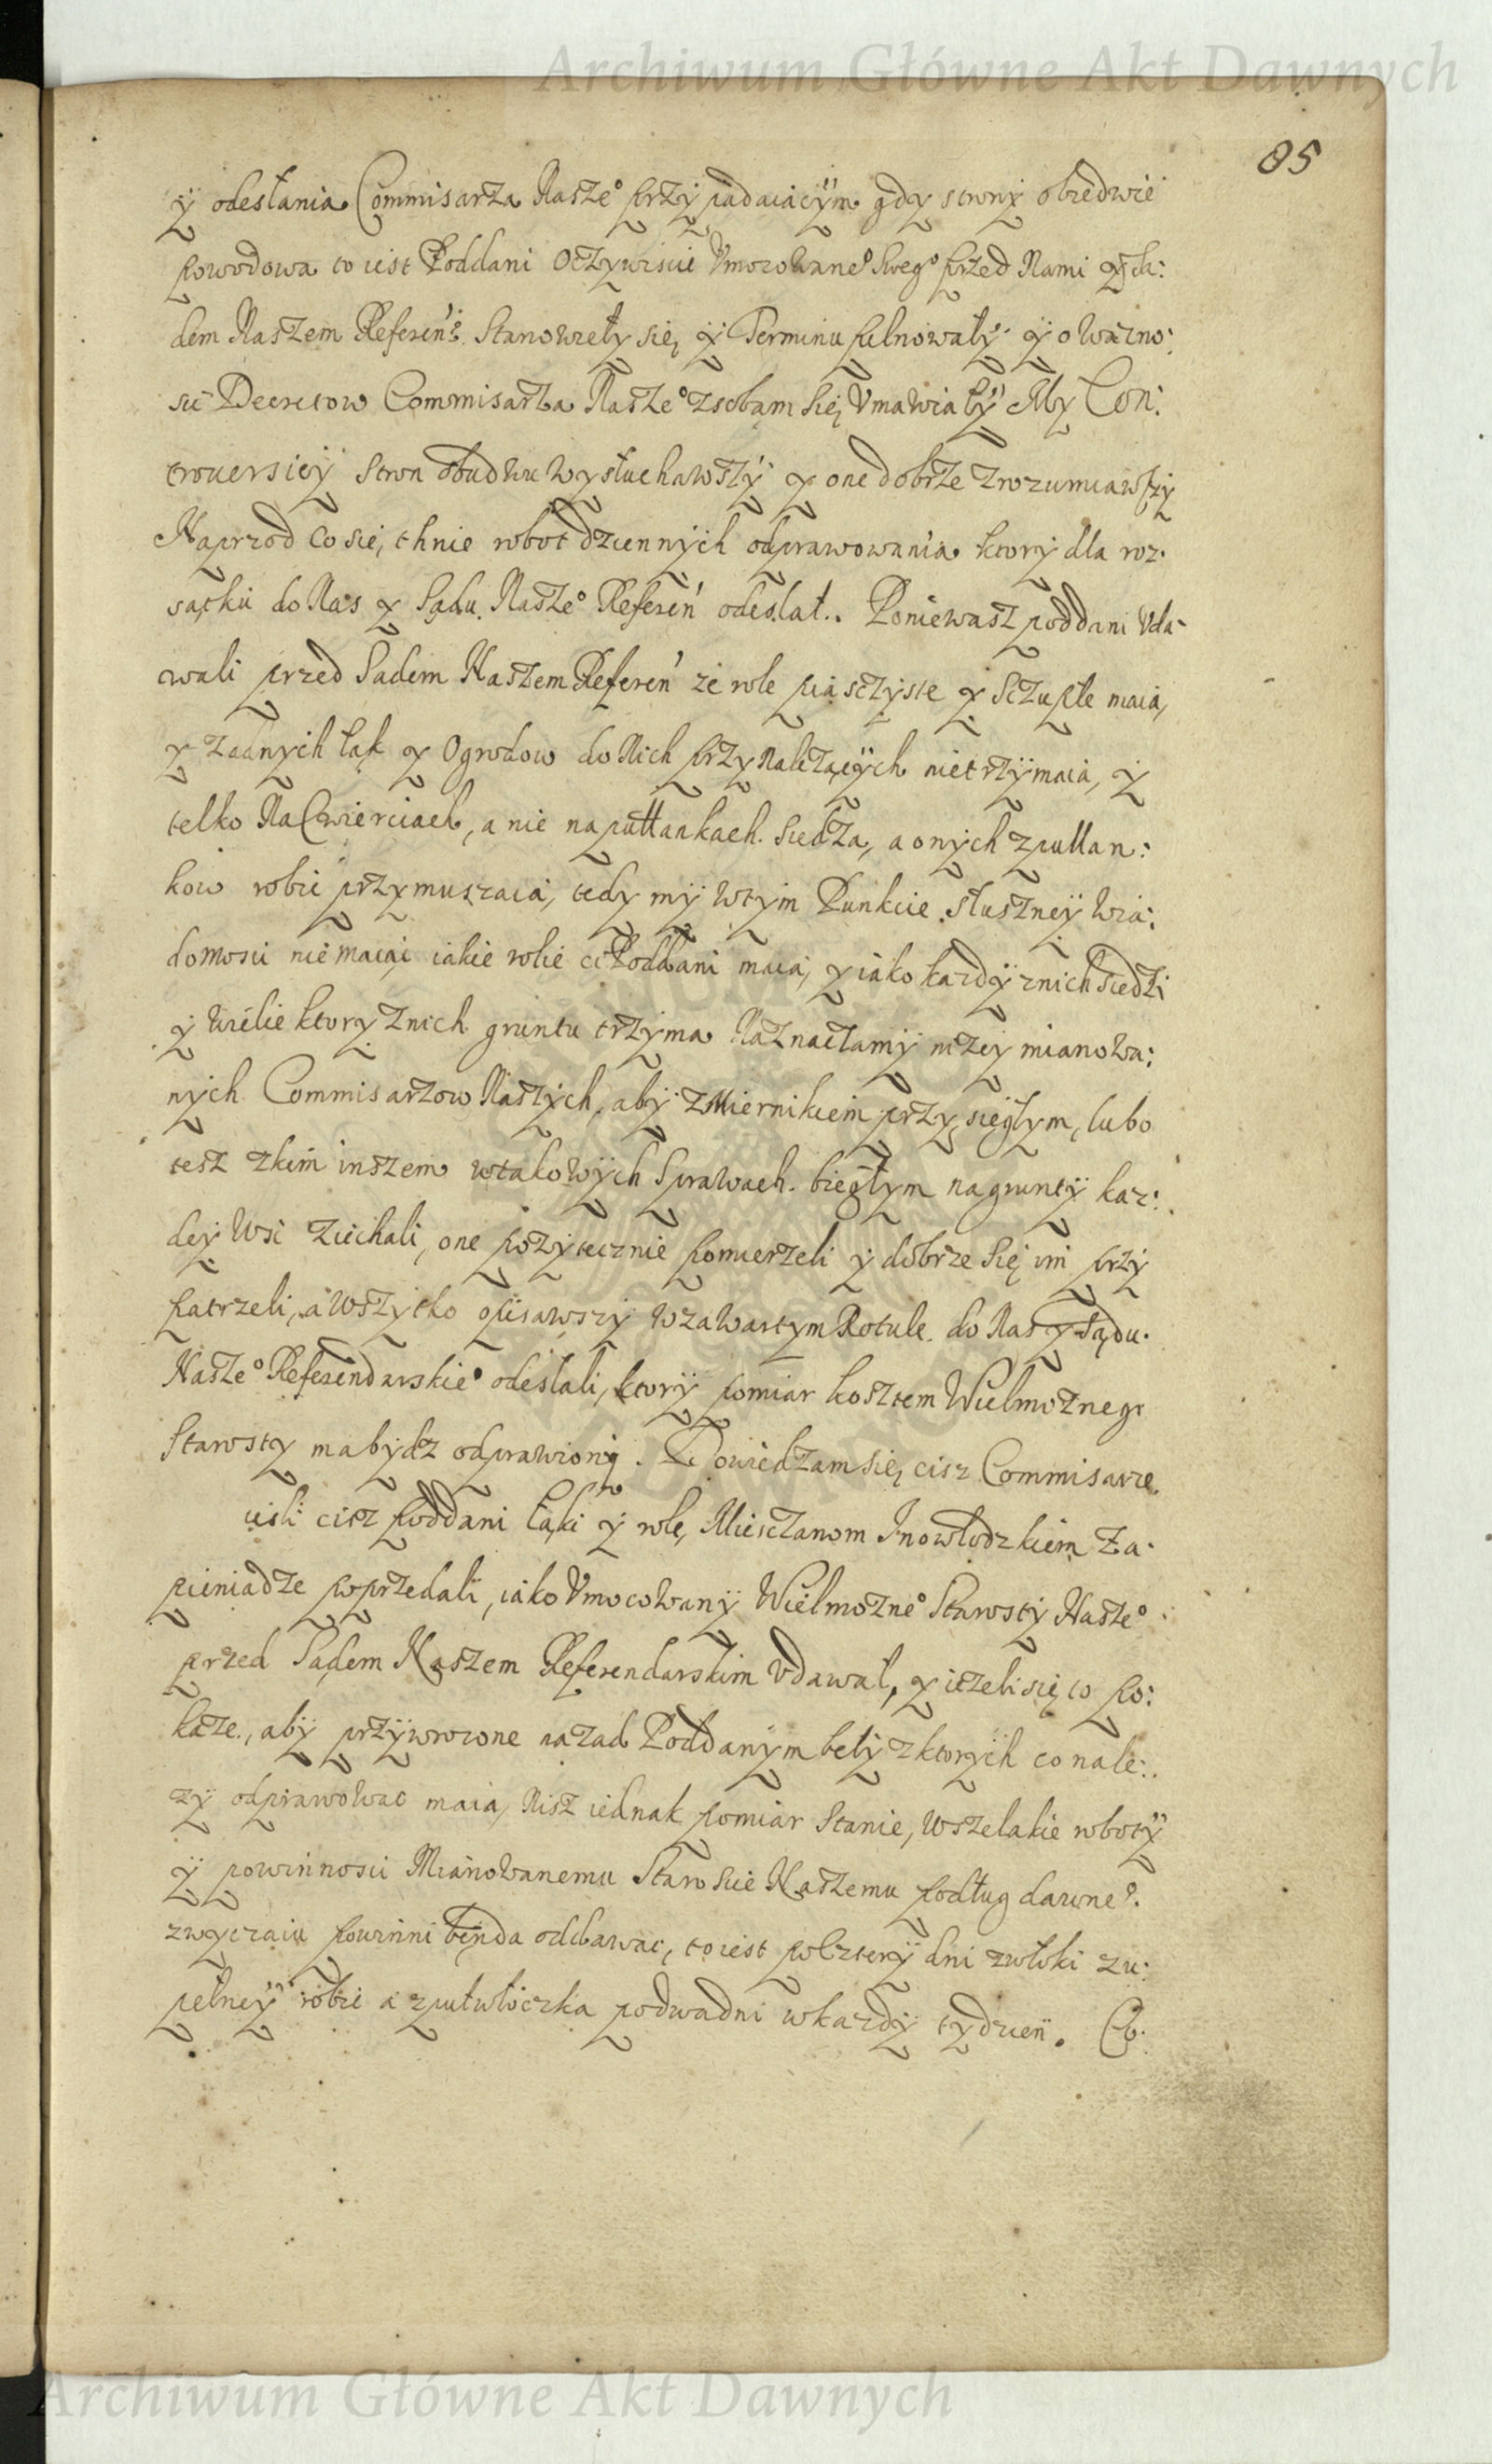 Archiwum Główne Akt Dawnych
85
ÿ odesłania Commisarza Nasze° przÿpadaiącÿm gdy stronÿ obiedwie
powodowa to iest Poddani Oczywiscie Vmocowane° Swego przed Nami ÿ Są:
dem Naszem Referen: Stanowieły się, ÿ Terminu pilnowałÿ ÿ o wazno:
sci Decretow Commisarza Nasze° zsobąm się Vmawiałÿ My Con:
trouersiÿ stron obudwu wysłuchawszÿ ÿ one dobrze zrozumiawszÿ
Naprzod Co się, thnie robot dziennÿch odprawowania ktorÿ dla roz:
sątku do Nas ÿ Sądu Nasze° Referen odesłał. Poniewasz poddani Vda:
wali przed Sądem Naszem Referen ze role piasczÿste ÿ Sczupłe maią,
ÿ zadnÿch łąk ÿ Ogrodow do Nich przÿnalezącÿch nietrzÿmaią, ÿ
telko Na Cwierciach, a nie na pułłankach Siedzą, a onÿch zpułłan:
kow robic przymuszaią, tedy mÿ wtÿm Punkcie słusznеÿ wia:
domosci niemaiąc iakie rolie ci Poddani maią, ÿ iako kazdÿ znich Siedzi
ÿ wielie ktory znich gruntu trzÿma Naznaczamÿ nizeÿ mianowa:
nÿch Commisarzow Naszÿch, abÿ zMiernikiem przÿsięgłym, lubo
tesz zkim inszem wtakowÿch Sprawach biegłym na gruntÿ kaz:
deÿ Wsi ziechali, one pozÿtecznie pomierzeli ÿ dobrze się im przÿ
patrzeli, a wszÿtko opisawszÿ wzawartym Rotule do Nas ÿ Sądu
Nasze° Referendarskie° odesłali, ktorÿ pomiar kosztem Wielmoznego
Starosty ma bÿdz odprawionÿ. Dowiedzam się, cisz Commisarze
iesli cisz poddani Łąki ÿ role, Miesczanom Inowłodzkiem za
pieniądze poprzedali, iako Vmocowanÿ Wielmozne° Starostÿ Nasze°
przed Sądem Naszem Referendarskim Vdawał, ÿ iezeli się to po:
kaze, abÿ przÿwrocone nazad Poddanÿm belÿ zktorÿch co nale:
zÿ odprawowac maią, Nisz iednak pomiar Stanie, wszelakie robotÿ
ÿ powinnosci Mianowanemu Staroscie Naszemu podług dawne°
zwyczaiu powinni będą oddawac, to iest po Czterÿ dni zwłoki zu:
pełneÿ robic a zpułwłoczka podwadni wkazdÿ tydzien. Co:
Archiwum Główne Akt Dawnych